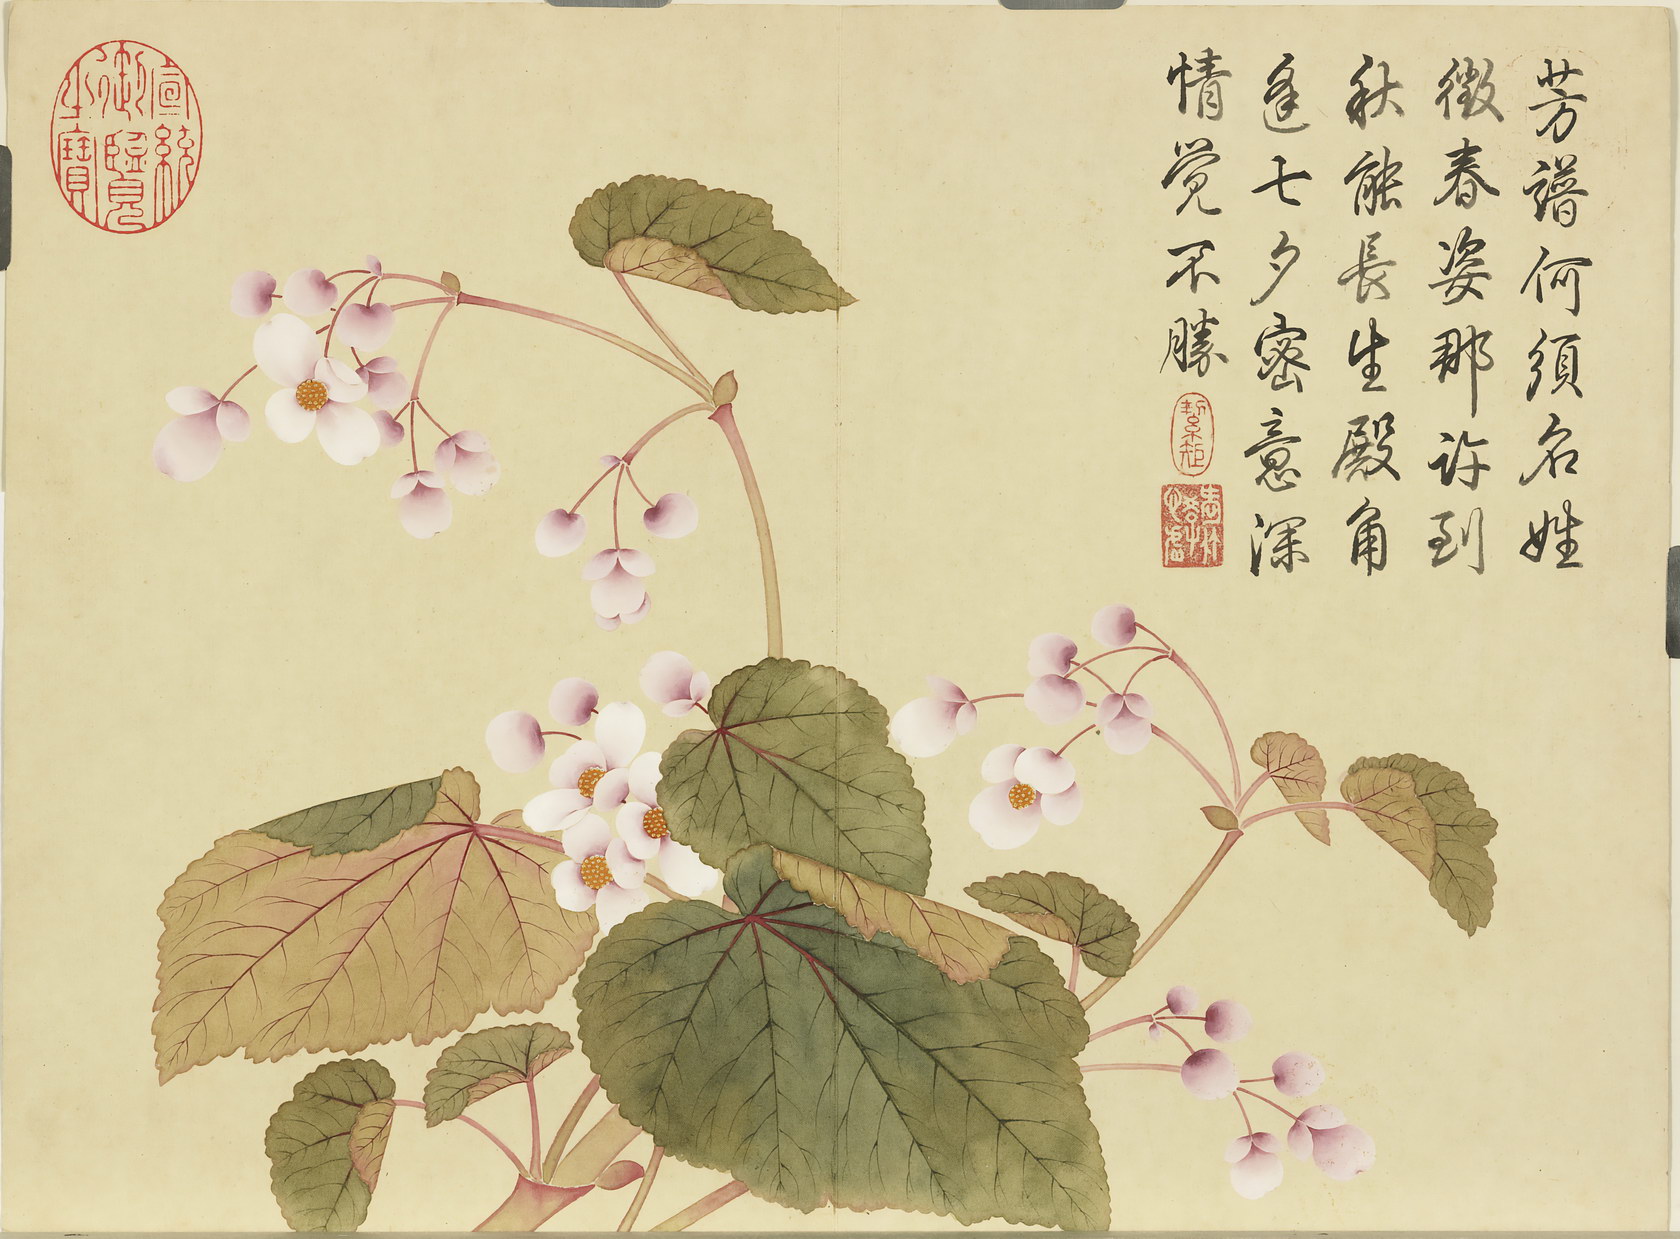 芳譜何須名姓
徵春姿那許到
秋能長生殿角
逢七夕密意深
情觉不勝
絜矩
宣統
御覽
之寶